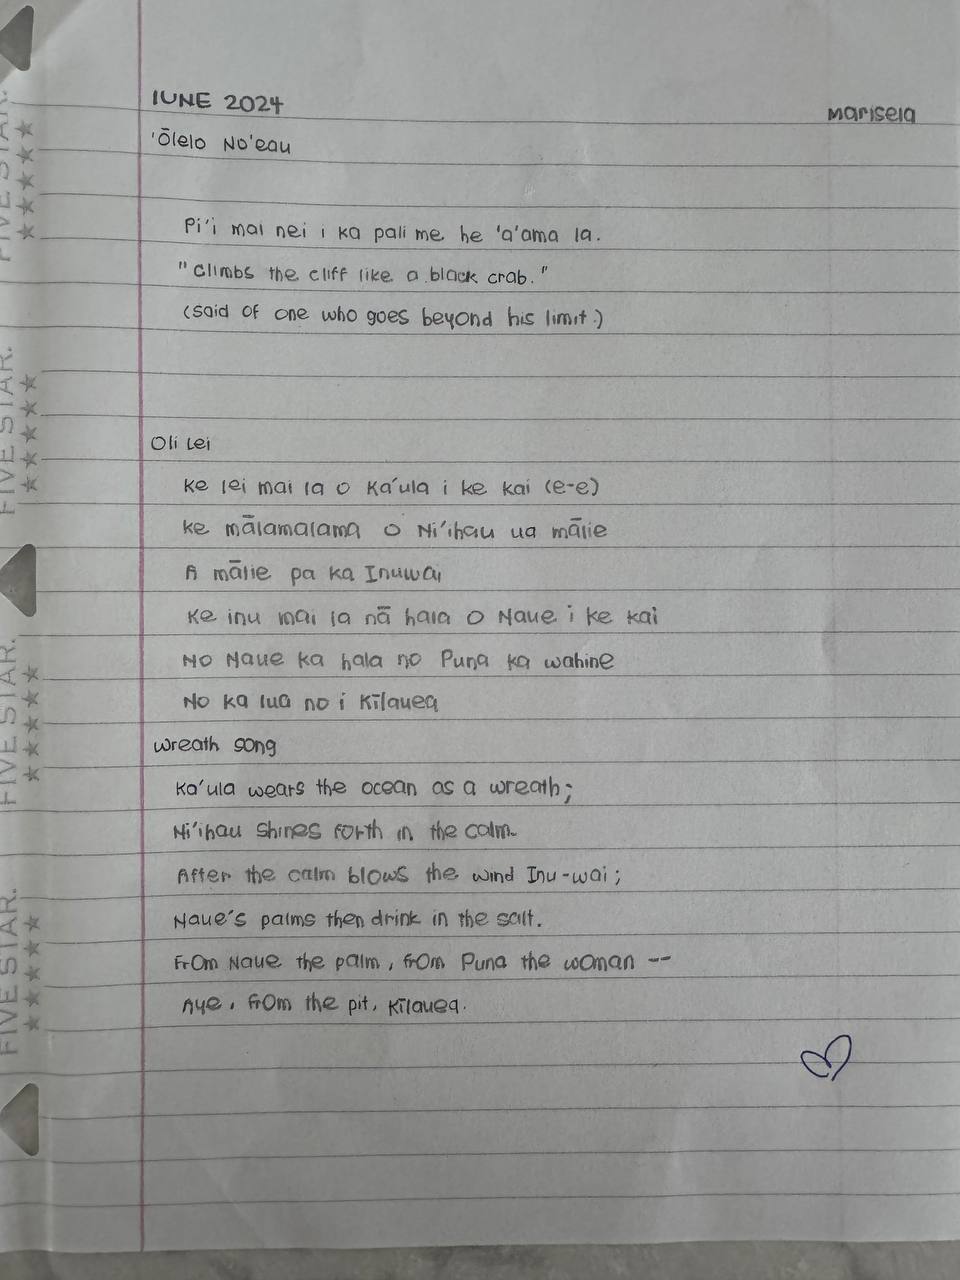 IUNE 2024
Marisela
'Ōlelo No'eau
Pi'i mai nei i ka pali me he 'a'ama la.
"Climbs the cliff like a black crab."
(said of one who goes beyond his limit.)
Oli Lei
Ke lei mai la o Ka'ula i ke kai (e-e)
ke mālamalama o Ni'ihau ua mālie
A mālie pa ka Inuwai
Ke inu mai la nā hala o Naue i ke kai
No Naue ka hala no Puna ka wahine
No ka lua no i Kīlauea
Wreath song
Ka'ula wears the ocean as a wreath;
Ni'ihau shines forth in the calm.
After the calm blows the wind Inu-wai;
Naue's palms then drink in the salt.
From Naue the palm, from Puna the woman --
Aye, from the pit, Kīlauea.
FIVE STAR.
FIVE STAR.
FIVE STAR.
FIVE STAR.